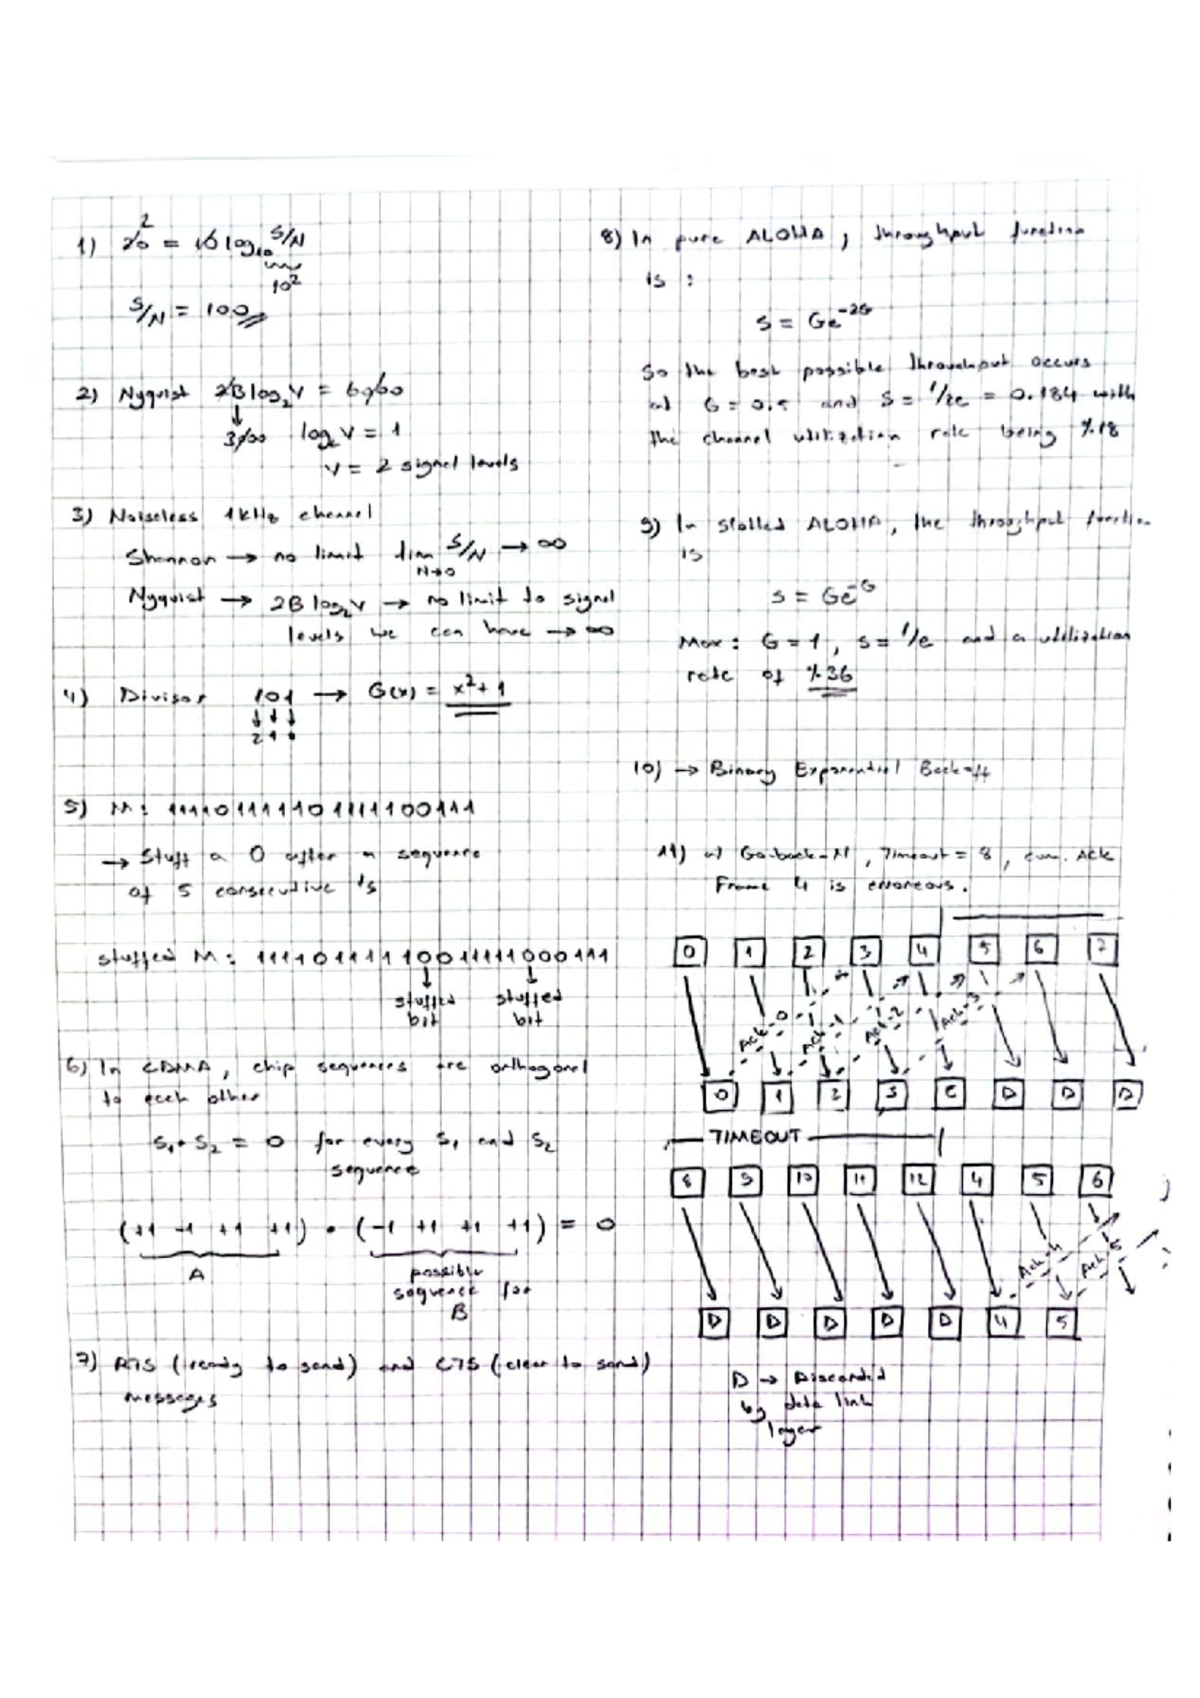 1) 20 = 10 log₁₀ S/N
2
10²
S/N = 100
2) Nyquist 2B log₂V = 6000
3000 log₂V = 1
V = 2 signal levels
3) Noiseless 1kHz channel
Shannon → no limit lim S/N → ∞
N→0
Nyquist → 2B log₂V → no limit to signal
levels we can have → ∞
4) Divisor 101 → G(x) = x²+1
2 1 0
5) M: 111101111101111100111
→ Stuff a 0 after a sequence
of 5 consecutive 1's
stuffed M: 11110111110011111000111
stuffed stuffed
bit bit
6) In CDMA, chip sequences are orthogonal
to each other
S₁•S₂ = 0 for every S₁ and S₂
sequence
(+1 -1 +1 +1) • (-1 +1 +1 +1) = 0
A
possible
sequence for
B
7) RTS (ready to send) and CTS (clear to send)
messages
8) In pure ALOHA, throughput function
is :
S = Ge^-2G
So the best possible throughput occurs
at G = 0.5 and S = 1/2e = 0.184 with
the channel utilization rate being %18
9) In slotted ALOHA, the throughput function
is
S = Ge^-G
Max: G = 1, S = 1/e and a utilization
rate of %36
10) → Binary Exponential Backoff
11) a) Go-back-N, Timeout = 8, cum. Ack
Frame 4 is erroneous.
0 1 2 3 4 5 6 7
Ack-0 Ack-1 Ack-2 Ack-3
0 1 2 3 E D D D
TIMEOUT
8 9 10 11 12 4 5 6
Ack-4 Ack-5
D D D D D 4 5
D → Discarded
by data link
layer